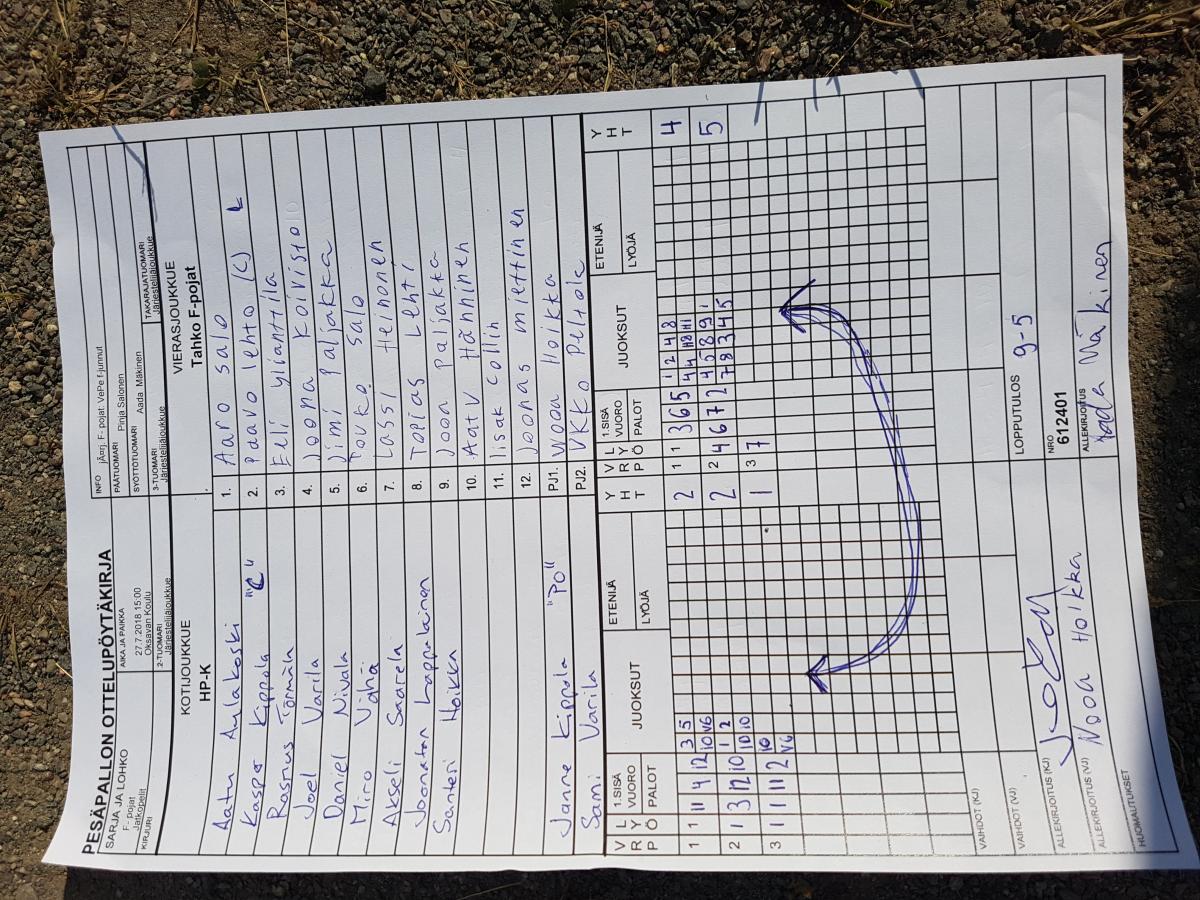 PESÄPALLON OTTELUPÖYTÄKIRJA
SARJA JA LOHKO
F - pojat
Jatkopelit
AIKA JA PAIKKA
27.7.2018 15:00
Oksavan Koulu
INFO jÃ¤rj. F- pojat: VePe f-junnut
PÄÄTUOMARI Pinja Salonen
SYÖTTÖTUOMARI Aada Mäkinen
KIRJURI
2-TUOMARI
Järjestelijäloukkue
3-TUOMARI
Järjestelijäloukkue
TAKARAJATUOMARI
Järjestelijäloukkue
KOTIJOUKKUE
HP-K
VIERASJOUKKUE
Tahko F-pojat
Aatu Aylakoski 1. Aaro Salo
Kasper Kippola "C" 2. Paavo Lehto (C) L
Rasmus Törmälä 3. Eeli Ylianttila
Joel Varila 4. Joona Koivisto
Daniel Nivala 5. Jimi Paljakka
Miro Vähä 6. Touko Salo
Akseli Saarela 7. Lassi Heinonen
Joonatan Lappalainen 8. Topias Lehti
Santeri Hoikka 9. Jooa Paljakka
10. Aatu Hänninen
11. Iisak Collin
12. Joonas Miettinen
Janne Kippola "PO" PJ1. Nooa Hoikka
Sami Varila PJ2. Ukko Peltola
V R L Y P Ö 1.SISÄ VUORO PALOT JUOKSUT ETENIJÄ LYÖJÄ Y H T V R L Y P Ö 1.SISÄ VUORO PALOT JUOKSUT ETENIJÄ LYÖJÄ Y H T
1 1 11 4 12 3 5 2 1 1 3 6 5 1 2 4 8 4
10 V6 4 4 H8 H1
2 1 3 12 10 1 2 2 2 4 6 7 2 4 5 8 9 1 5
10 10 7 8 3 4 5
3 1 11 12 10 1 3 7
V6
VAIHDOT (KJ)
VAIHDOT (VJ)
LOPPUTULOS 9-5
ALLEKIRJOITUS (KJ)
NRO
612401
ALLEKIRJOITUS (VJ) Nooa Hoikka
ALLEKIRJOITUS Aada Mäkinen
HUOMAUTUKSET